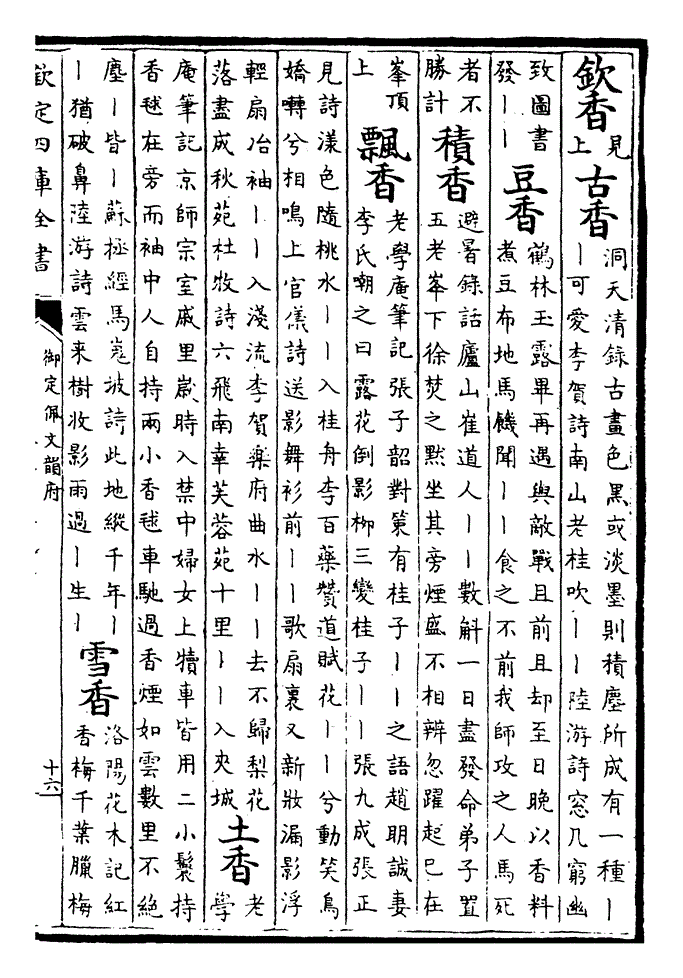 欽香 見
上 古香 洞天清録古畫色黒或淡墨則積塵所成有一種丨
丨可愛李賀詩南山老桂吹丨丨陸游詩窓几窮幽
致圖書
發丨丨 豆香 鶴林玉露畢再遇與敵戰且前且却至日晚以香料
煮豆布地馬饑聞丨丨食之不前我師攻之人馬死
者不
勝計 積香 避暑録話廬山崔道人丨丨數斛一日盡發命弟子置
五老峯下徐焚之黙坐其旁煙盛不相辨忽躍起已在
峯頂
上 飄香 老學庵筆記張子韶對策有桂子丨丨之語趙明誠妻
李氏嘲之曰露花倒影柳三變桂子丨丨張九成張正
見詩漾色隨桃水丨丨入桂舟李百藥贊道賦花丨丨兮動笑鳥
嬌囀兮相鳴上官儀詩送影舞衫前丨丨歌扇裏又新妝漏影浮
輕扇冶袖丨丨入淺流李賀樂府曲水丨丨去不歸梨花
落盡成秋苑杜牧詩六飛南幸芙蓉苑十里丨丨入夾城 土香 老
學
庵筆記京師宗室戚里嵗時入禁中婦女上犢車皆用二小鬟持
香毬在旁而袖中人自持兩小香毬車馳過香煙如雲數里不絶
塵丨皆丨蘇拯經馬嵬坡詩此地縱千年丨
丨猶破鼻陸游詩雲来樹妝影雨過丨生丨 雪香 洛陽花木記紅
香梅千葉臘梅
欽定四庫全書
御定佩文韻府
十六